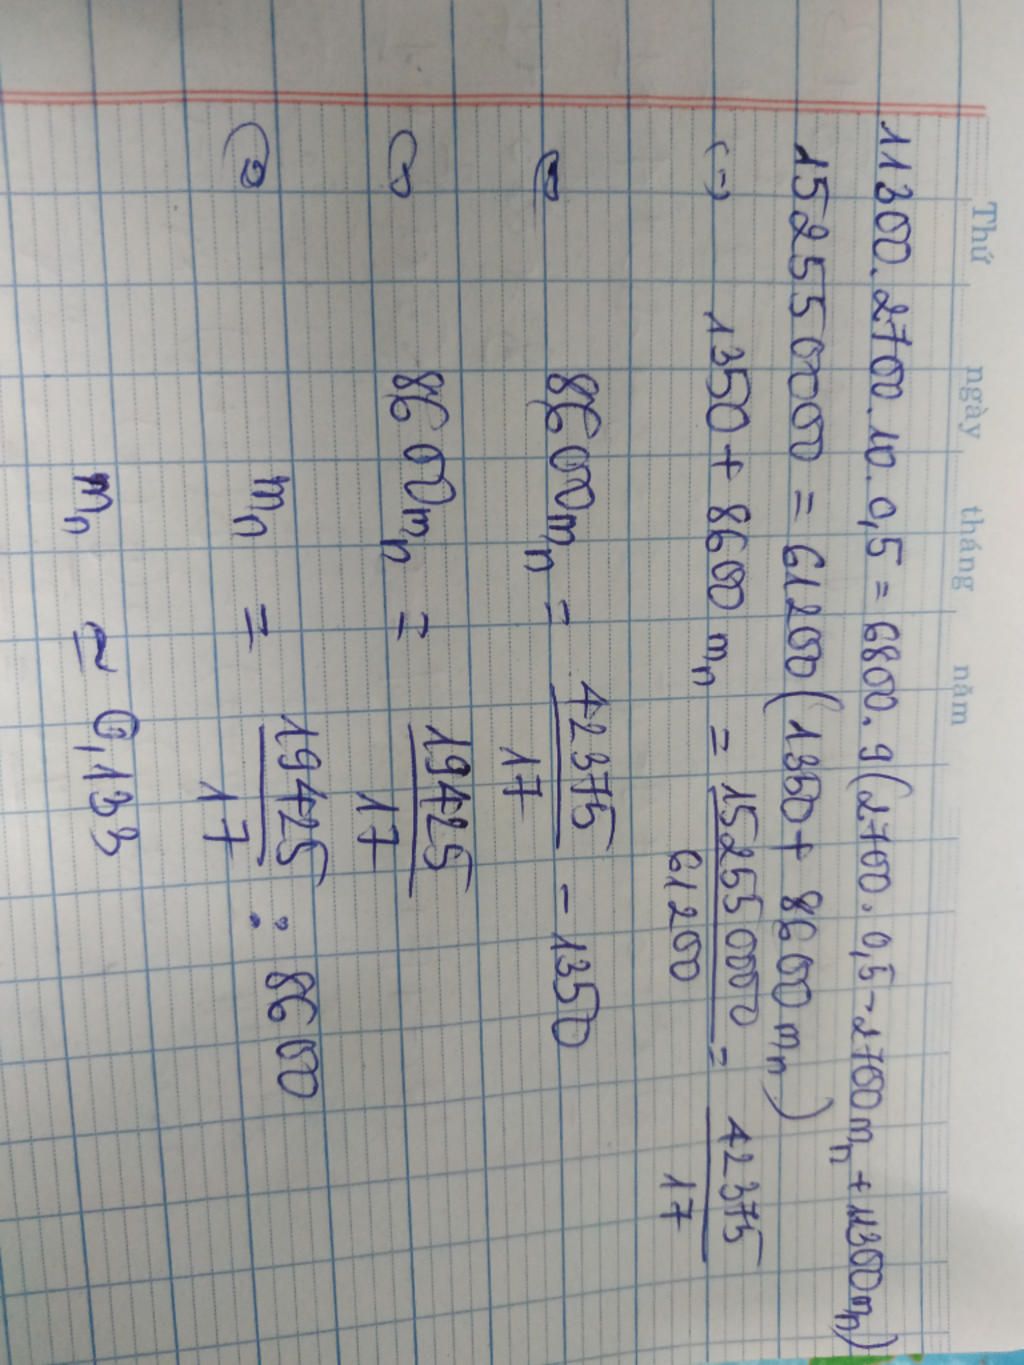 Thứ ngày tháng năm
11300.2700.10.0,5 = 6800.9(2700.0,5-2700mₙ+11300mₙ)
152550000 = 61200(1350+8600mₙ)
(-) 1350+8600mₙ = 152550000/61200 = 42375/17
8600mₙ = 42375/17 - 1350
8600mₙ = 19425/17
mₙ = 19425/17 : 8600
mₙ ≃ 0,133